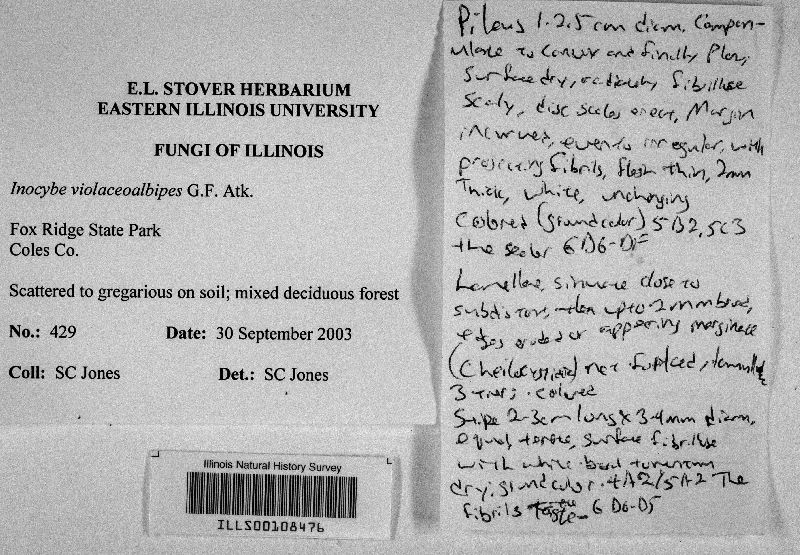 E.L. STOVER HERBARIUM
EASTERN ILLINOIS UNIVERSITY
FUNGI OF ILLINOIS
Inocybe violaceoalbipes G.F. Atk.
Fox Ridge State Park
Coles Co.
Scattered to gregarious on soil; mixed deciduous forest
No.: 429 Date: 30 September 2003
Coll: SC Jones Det.: SC Jones
Illinois Natural History Survey
ILLS00108476
Pileus 1-2.5 cm diam, Campan-
ulate to convex and finally plan,
Surface dry, radially fibrillose
Scaly, disc scales erect, Margin
incurved, even to irregular, with
projecting fibrils, flesh thin, 2mm
Thick, white, unchanging
Colored (ground color) 5B2, 5C3
the scales 6D6-
Lamellae, sinuate close to
subdistant, up to 2 mm broad,
edges eroded or appearing marginate
(Cheilocystidia) not
3 tiers. colored
Stipe 2-3cm long x 3-4 mm diam,
equal, terete, surface fibrillose
with white tomentum
dry, ground color 4A2/5A2 The
fibrils 6D6-D5